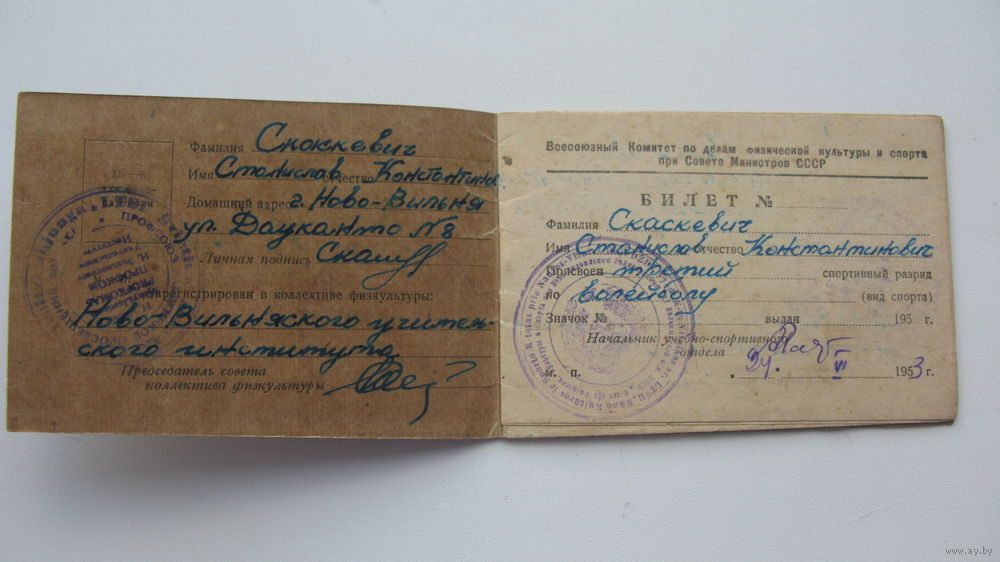 Фамилия Скаскевич
Имя Станислав отчество Константинов
Домашний адрес г. Ново-Вильня
ул. Дауканто № 8
Личная подпись
Место
Зарегистрирован в коллективе физкультуры:
Ново-Вильняского учитель-
ского института
Председатель совета
коллектива физкультуры
ПРОФСОЮЗ
ПРОФКОМ
PROFKOMAS
Всесоюзный Комитет по делам физической культуры и спорта
при Совете Министров СССР
БИЛЕТ №
Фамилия Скаскевич
Имя Станислав отчество Константинович
Присвоен третий спортивный разряд
по валейболу (вид спорта)
Значок № выдан 195 г.
Начальник учебно-спортивного
отдела
м. п. 24 VI 1953 г.
www.ay.by